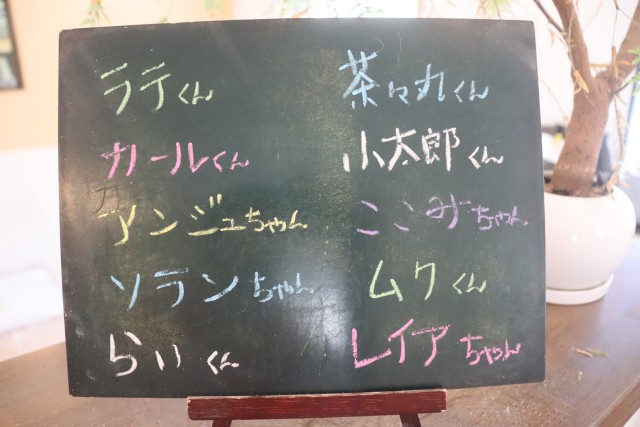 ラテくん
カールくん
アンジュちゃん
ソランちゃん
らいくん
茶々丸くん
小太郎くん
ここみちゃん
ムクくん
レイアちゃん